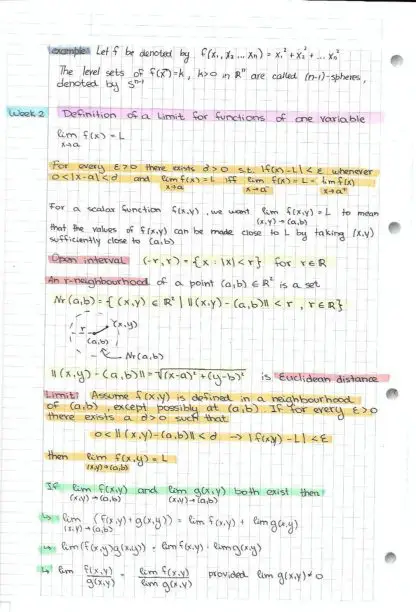 example: Let f be denoted by f(x₁, x₂ ... xₙ) = x₁² + x₂² + ... xₙ²
The level sets of f(x⃗) = k, k>0 in ℝⁿ are called (n-1)-spheres,
denoted by Sⁿ⁻¹
Week 2 Definition of a Limit for functions of one variable
lim f(x) = L
x→a
For every ε>0 there exists d>0 s.t. |f(x)-L|<ε whenever
0<|x-a|<d and lim f(x) = L iff lim f(x) = L = lim f(x)
x→a x→a⁻ x→a⁺
For a scalar function f(x,y), we want lim f(x,y) = L to mean
(x,y)→(a,b)
that the values of f(x,y) can be made close to L by taking (x,y)
sufficiently close to (a,b)
Open interval (-r,r) = {x : |x|<r} for r∈ℝ
An r-neighbourhood of a point (a,b) ∈ ℝ² is a set
Nr(a,b) = {(x,y) ∈ ℝ² | ||(x,y)-(a,b)|| < r, r∈ℝ}
r (x,y)
(a,b)
Nr(a,b)
||(x,y)-(a,b)|| = √(x-a)² + (y-b)² is Euclidean distance
Limit: Assume f(x,y) is defined in a neighbourhood
of (a,b), except possibly at (a,b). If for every ε>0
there exists a d>0 such that
0<||(x,y)-(a,b)||<d → |f(x,y)-L|<ε
then lim f(x,y) = L
(x,y)→(a,b)
If lim f(x,y) and lim g(x,y) both exist then
(x,y)→(a,b) (x,y)→(a,b)
↳ lim (f(x,y)+g(x,y)) = lim f(x,y) + lim g(x,y)
(x,y)→(a,b)
↳ lim (f(x,y)g(x,y)) = lim f(x,y) · lim g(x,y)
↳ lim f(x,y) = lim f(x,y) provided lim g(x,y) ≠ 0
g(x,y) lim g(x,y)